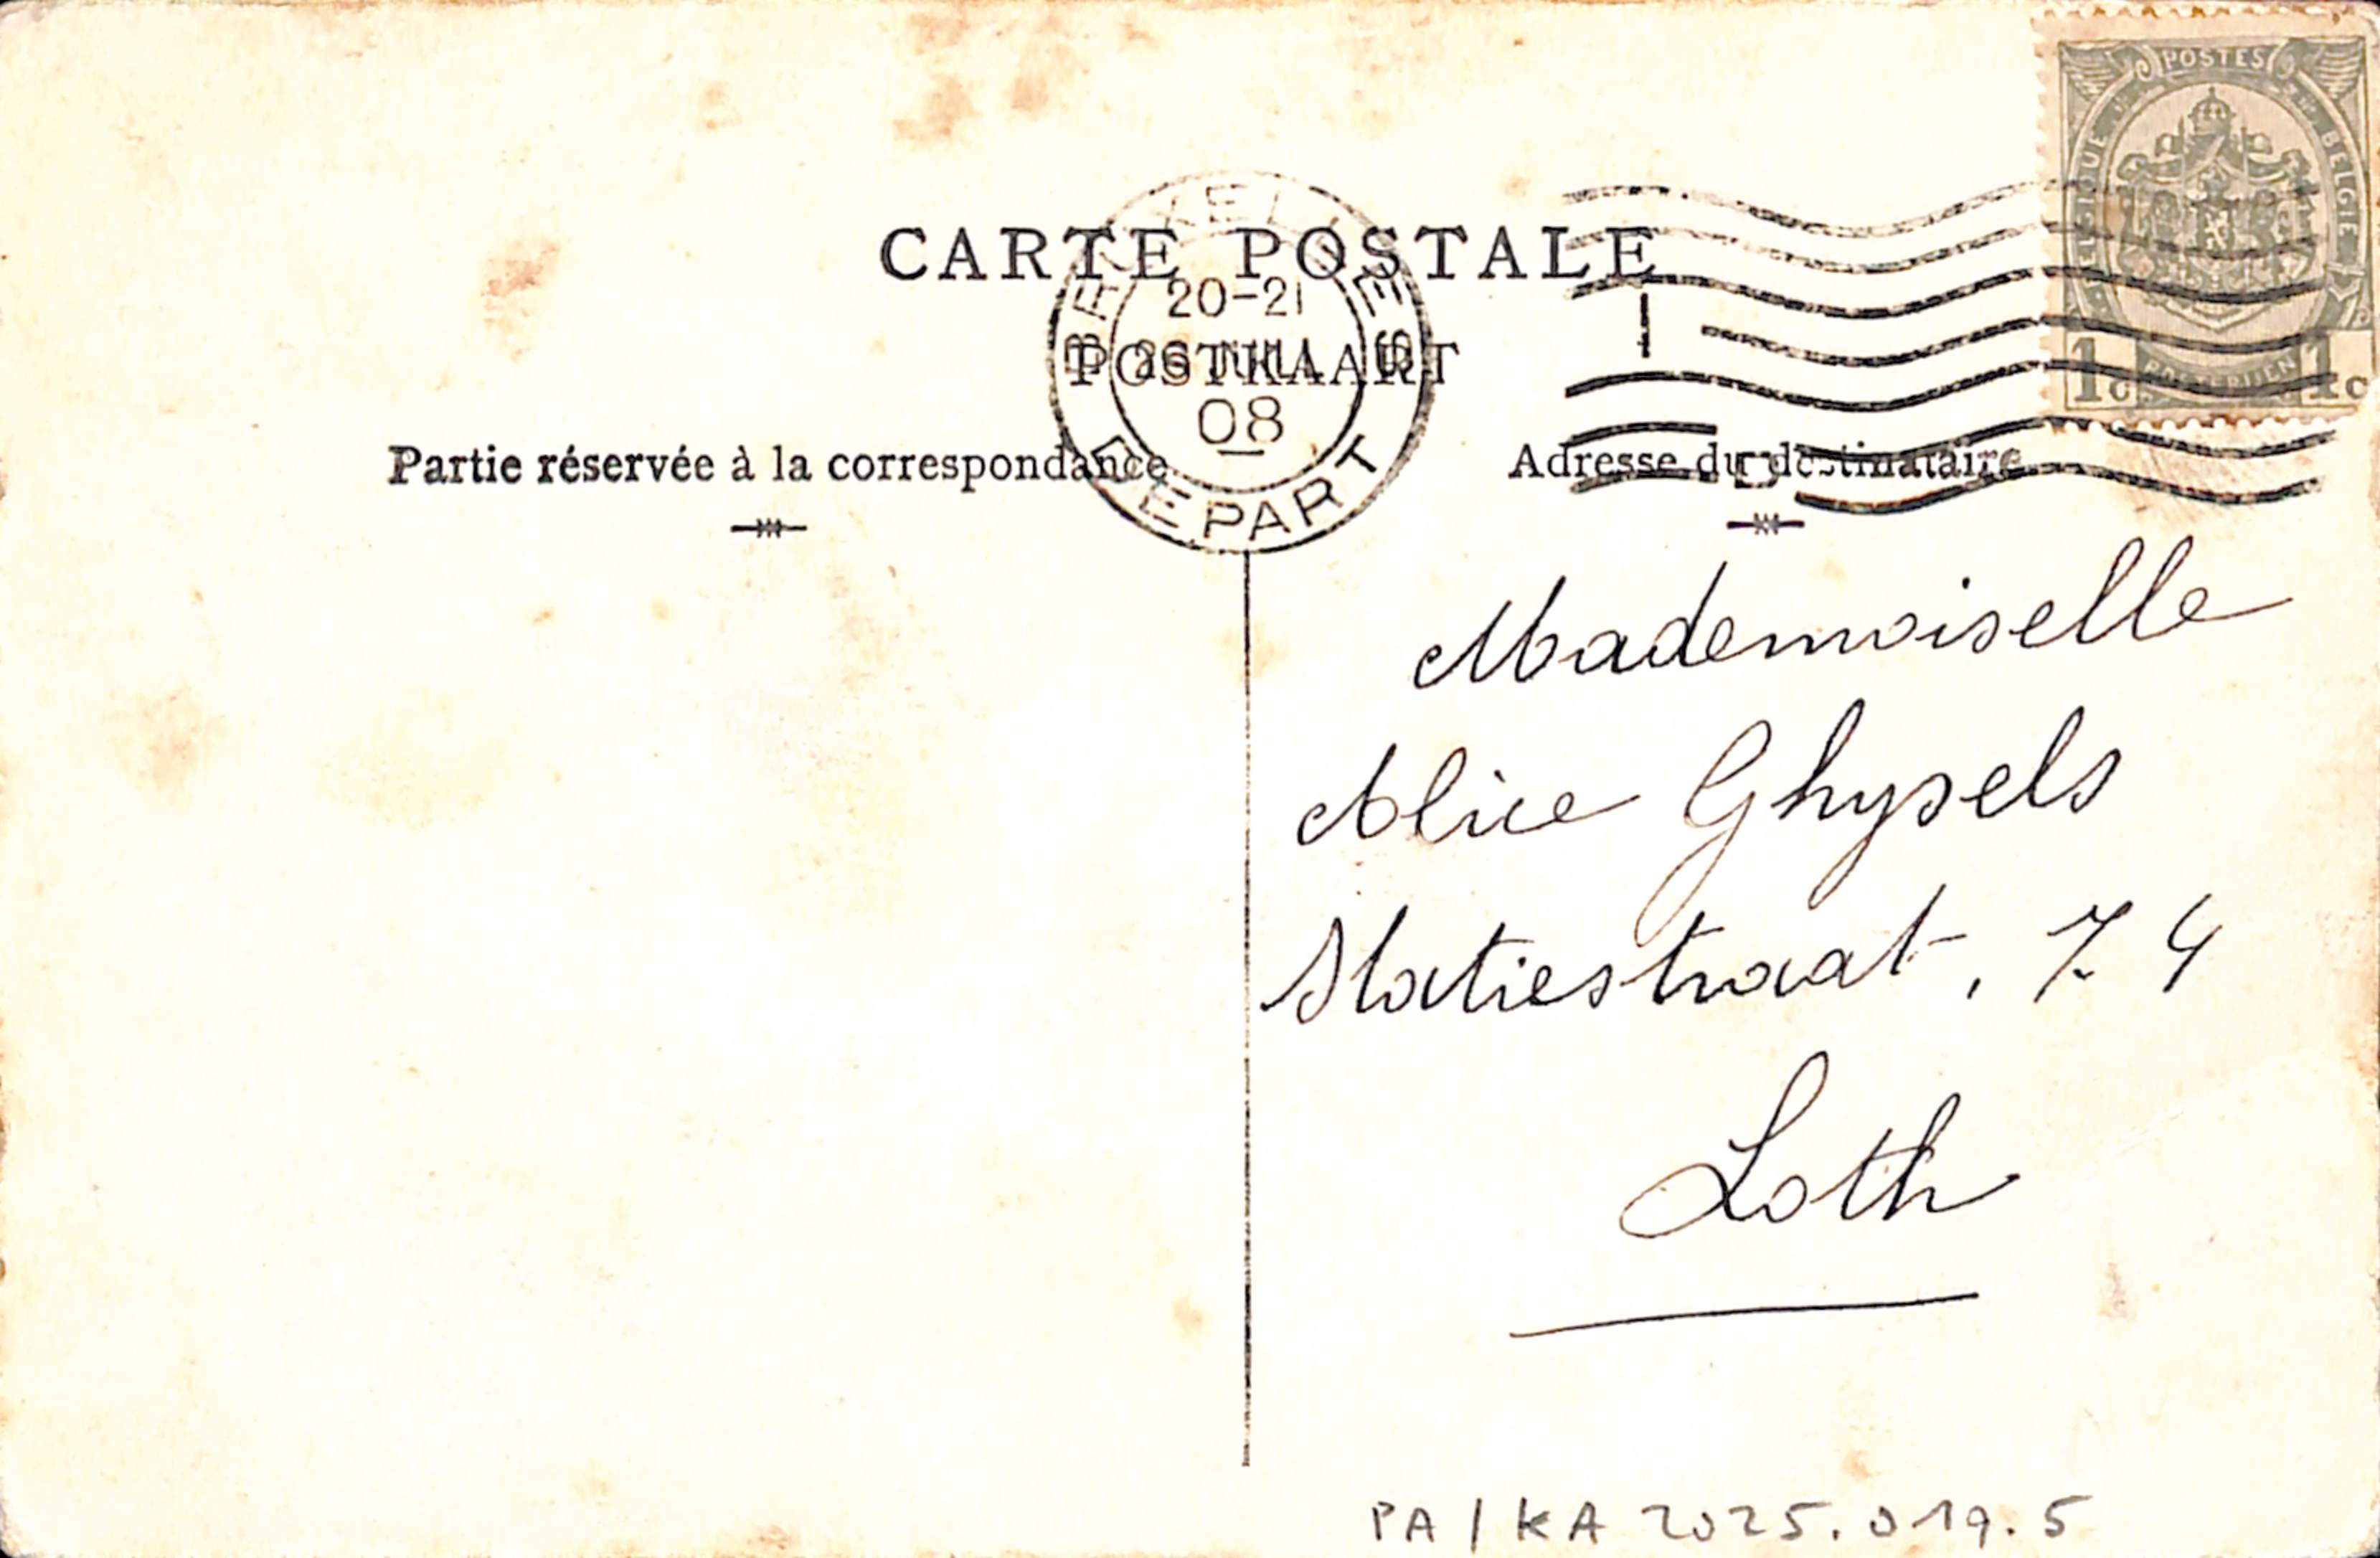 POSTES
BELGIQUE
BELGIË
1c POSTERIJEN 1c
CARTE POSTALE
POSTKAART
BRUXELLES
20-21
JUIL
08
DEPART
Partie réservée à la correspondance
Adresse du destinataire
Mademoiselle
Alice Ghysels
Statiestraat, 74
Loth
PA/KA 2025.019.5